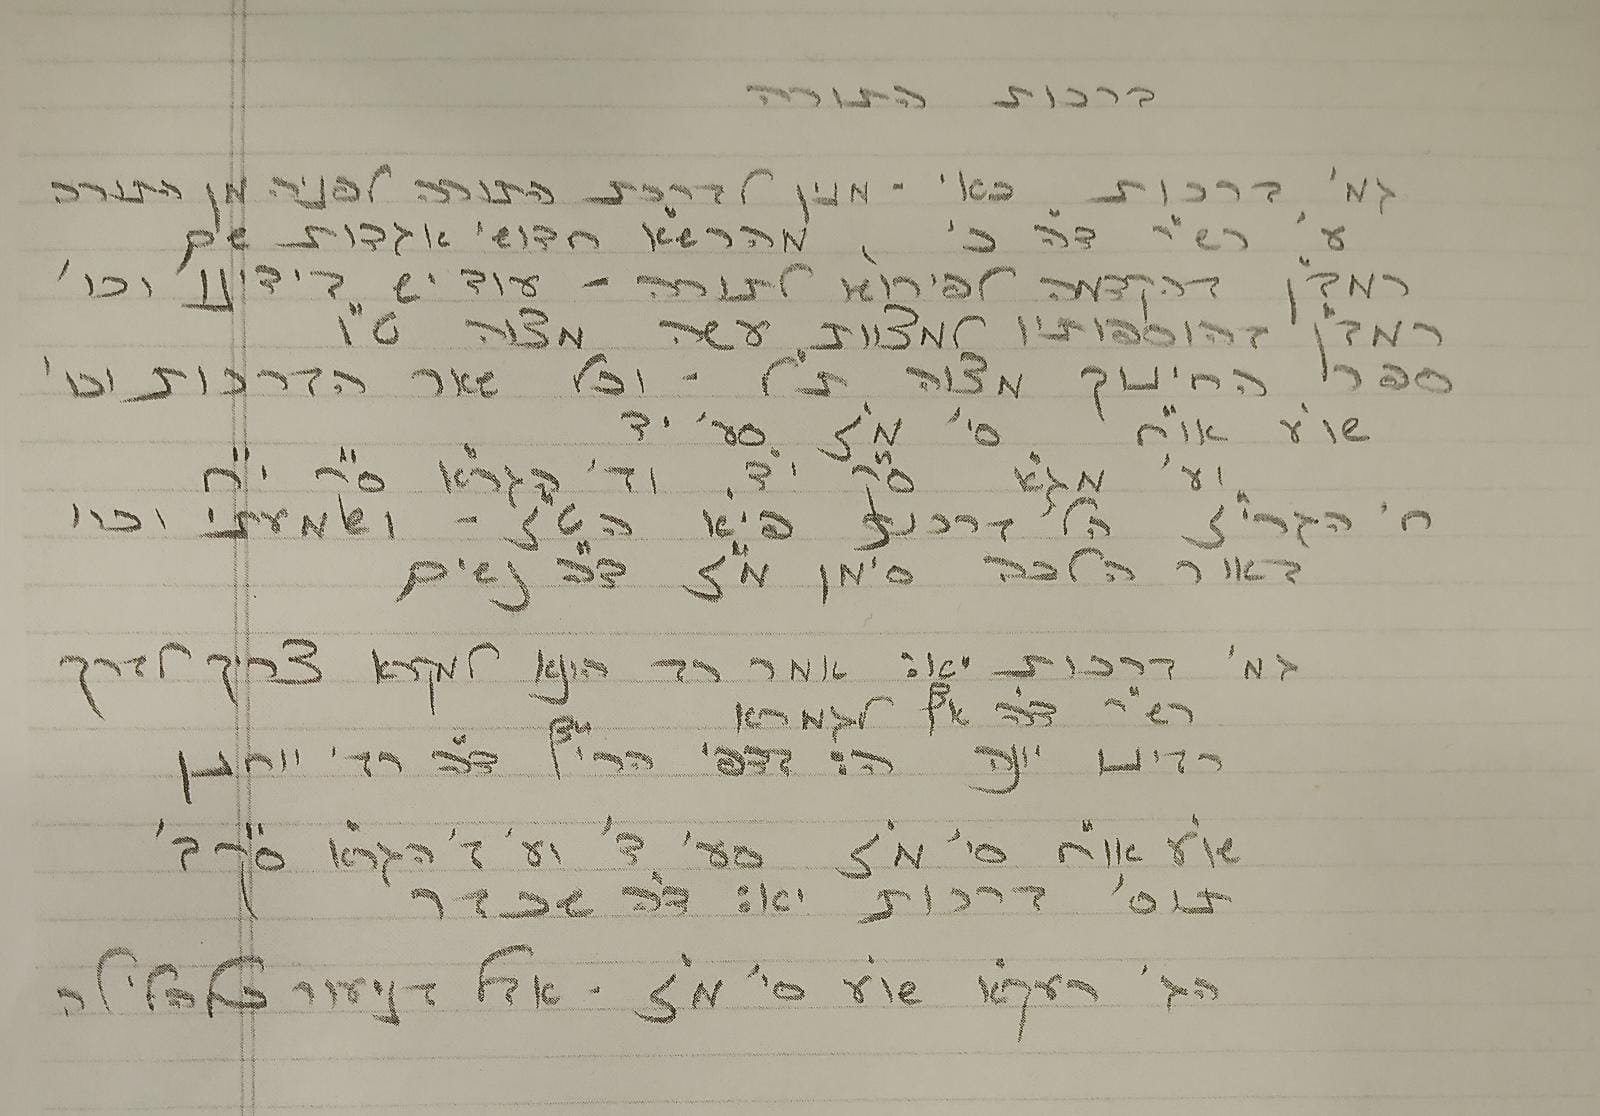 ברכות התורה
גמ' ברכות כא׳ - מנין לברכת התורה לפניה מן התורה
ע' רש"י ד"ה כי , מהרש"א חדושי אגדות שם
רמב"ן בהקדמה לפירוא לתורה - עוד יש בידינו וכו'
רמב"ן בהוספותיו למצוות עשה מצוה ט"ו
ספר החינוך מצוה ת"ל - וכל שאר הברכות וכו'
שו"ע או"ח סי' מ"ז סע' יד
ועי מג"א ס"ק י"ד, וב' הגר"א ס"ק י"ח
ח' הגרי"ז הל' ברכות פי"א הט"ז - ושמעתי וכו'
באור הלכה סימן מ"ז ד"ה נשים
גמ' ברכות יא: אמר רב הונא למקרא צריך לברך
רש"י ד"ה אף לגמרא
רבינו יונה ה: בדפי הרי"ף ד"ה רבי יוחנן
שו"ע או"ח סי' מ"ז סע' ד' ועי ב' הגר"א ס"ק ב'
תוס' ברכות יא: ד"ה שכבר
הג' רעק"א שו"ע סי' מ"ז - אבל בניעור כל הלילה